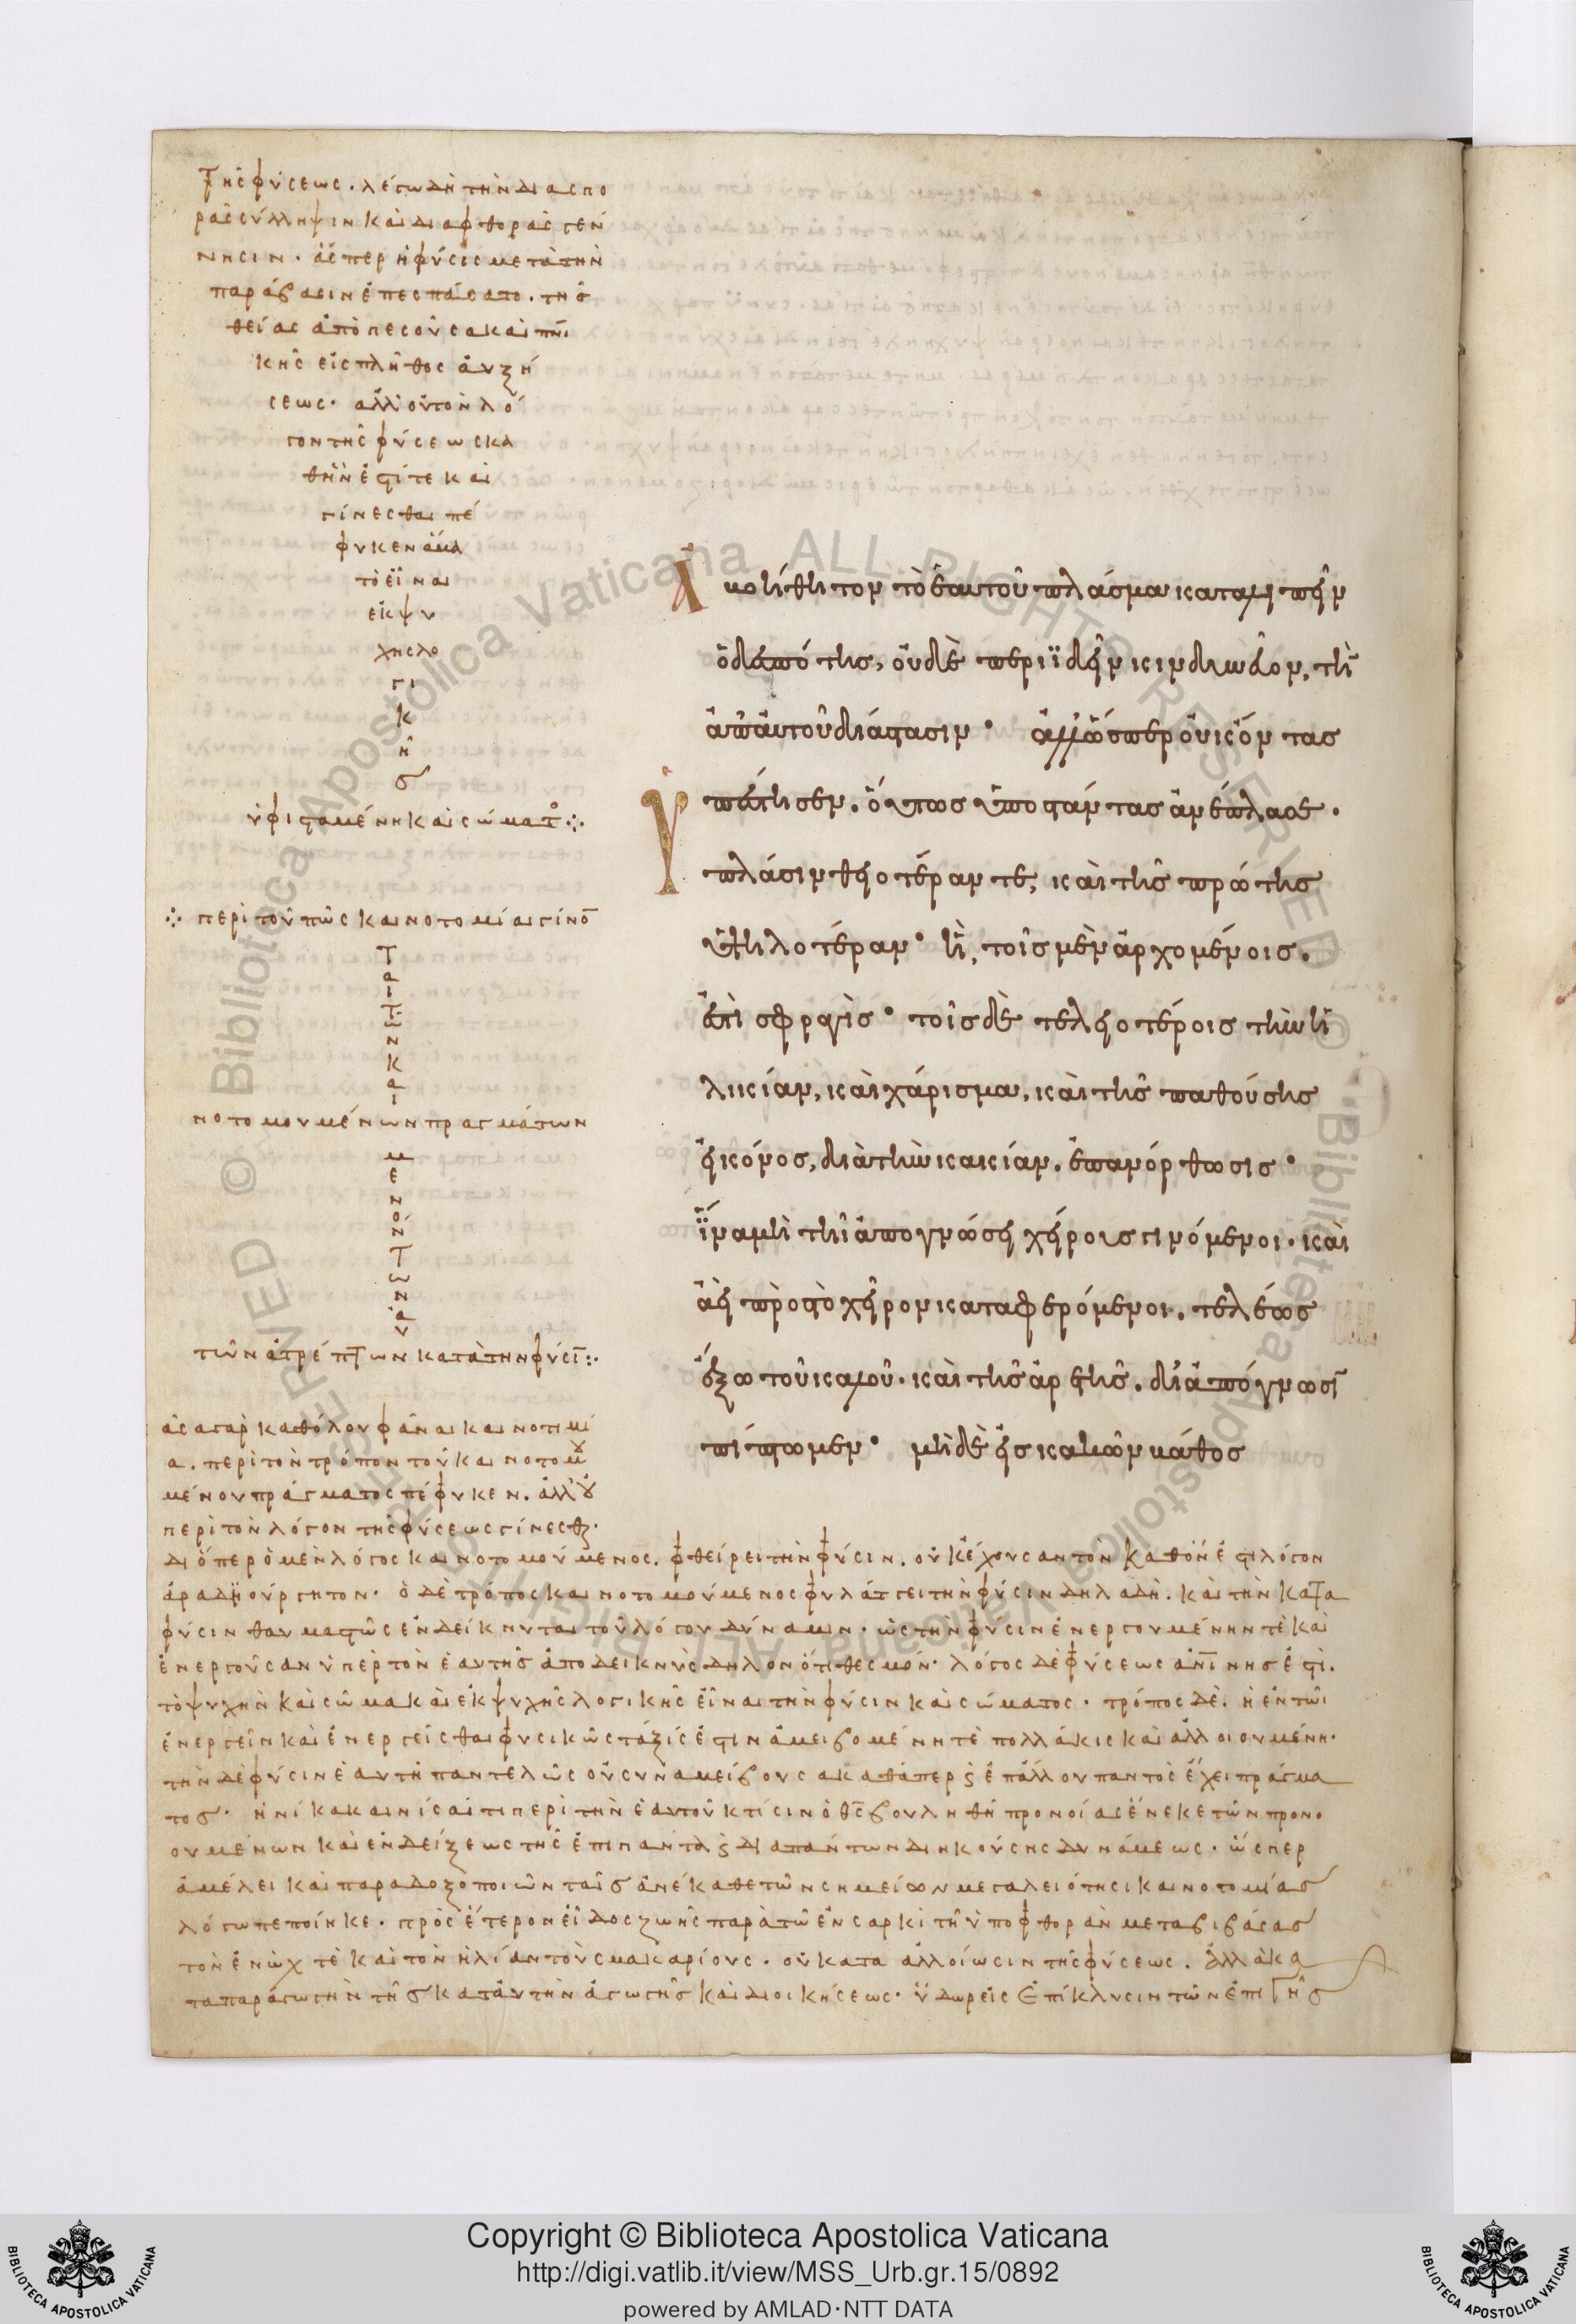 τῆς φύσεως. λέγω δὴ τὴν διασπο
ρᾶς σύλληψιν καὶ διαφθορᾶς γέν
νησιν. ἅσπερ ἡ φύσις μετὰ τὴν
παράβασιν ἐπεσπάσατο. τῆς
θείας ἀποπεσοῦσα καὶ πνι
κῆς εἰς πλῆθος αὐξή
σεως. ἀλλ' οὐ τὸν λό
γον τῆς φύσεως κα
θ' ἣν ἐστί τε καὶ
γίνεσθαι πέ
φυκεν ἅμα
τὸ εἶναι
ἐκ ψυ
χῆς λο
γι
κ
ῆ
ς
ὑφισταμένη καὶ σώματο ⁘
⁘ περὶ τοῦ πῶς καινοτομίαι γίνον
ται τῶν και
νοτομουμένων πραγμάτων
μενόντων
τῶν ἀτρέπτων κατὰ τὴν φύσι ⁘
πᾶσα γὰρ καθόλου φάναι καινοτομί
α. περὶ τὸν τρόπον τοῦ καινοτομου
μένου πράγματος πέφυκεν. ἀλλ' οὐ
περὶ τὸν λόγον τῆς φύσεως γίνεσθαι.
διόπερ ὁ μὲν λόγος καινοτομούμενος. φθείρει τὴν φύσιν. οὐκ ἔχουσαν τὸν καθ' ὅν ἐστι λόγον
ἀραδιούργητον. ὁ δὲ τρόπος καινοτομούμενος φυλάττει τὴν φύσιν δηλαδή. καὶ τὴν κατα
φύσιν θαυμαστῶς ἐνδείκνυται τοῦ λόγου δύναμιν. ὡς τὴν φύσιν ἐνεργουμένην τὲ καὶ
ἐνεργοῦσαν ὑπὲρ τὸν ἑαυτῆς ἀποδεικνὺς δηλονότι θεσμόν. λόγος δὲ φύσεως ἀνίνης ἐστι.
τὸ ψυχὴν καὶ σῶμα καὶ ἐκ ψυχῆς λογικῆς εἶναι τὴν φύσιν καὶ σώματος. τρόπος δὲ. ἡ ἐν τῶι
ἐνεργεῖν καὶ ἐνεργεῖσθαι φυσικῶς τάξις ἐστιν ἀμειβομένη τὲ πολλάκις καὶ ἀλλοιουμένη.
τὴν δὲ φύσιν ἑαυτῆ παντελῶς οὐ συναμείβουσα καθάπερ ϛ ἐπ' ἄλλου παντὸς ἔχει πράγμα
τος. ἡνίκα καινίσαι τι περὶ τὴν ἑαυτοῦ κτίσιν ὁ θς βουληθῆ προνοίας ἕνεκε τῶν προνο
ουμένων καὶ ἐνδείξεως τῆς ἐπι παντα ϛ δια πάντων διηκούσης δυνάμεως. ὥσπερ
ἀμέλει καὶ παραδοξοποιῶν ταῖς ἀνέκαθε τῶν σημείων μεγαλειότησι καινοτομίας
λόγω πεποίηκε. πρὸς ἕτερον εἶδος ζωῆς παρὰ τῶ ἐν σαρκὶ τῆ ὑπο φθορὰν μεταβιβάσας
τὸν ἐνὼχ τὲ καὶ τὸν ἠλίαν τοὺς μακαρίους. οὐ κατα ἀλλοίωσιν τῆς φύσεως. ἀλλὰ κα
τα παραγωγὴν τῆς κατ' αὐτὴν ἀγωγῆς καὶ διοικήσεως. ὕδωρ εἰς ἐπίκλυσιν τῶν ἐπὶ γῆς
Ἀβοήθητον τὸ ἑαυτοῦ πλάσμα καταλιπεῖν
ὁ δεσπότης, οὐδὲ περιϊδεῖν κινδυνεῦον, τὴν
ἀπ' αὐτοῦ διάστασιν· ἀλλ' ὥσπερ οὐκ ὄντας
ὑπέστησεν. οὕτως ὑποστάντας ἀνέπλασε.
πλάσιν θειοτέραν τε, καὶ τῆς πρώτης
ὑψηλοτέραν· ἣ, τοῖς μὲν ἀρχομένοις.
ἐστὶ σφραγίς· τοῖς δὲ τελειοτέροις τὴν ἡ
λικίαν, καὶ χάρισμα, καὶ τῆς παθούσης
εἰκόνος, διὰ τὴν κακίαν. ἐπανόρθωσις·
ἵνα μὴ τῆι ἀπογνώσει χείρους γινόμενοι. καὶ
ἀεὶ πρὸς τὸ χεῖρον καταφερόμενοι. τελέως
ἔξω τοῦ καλοῦ. καὶ τῆς ἀρετῆς. δι' ἀπόγνωσιν
πίπτωμεν· μὴ δὲ εἰς κακῶν βάθος
© Biblioteca Apostolica Vaticana ALL RIGHTS RESERVED © Biblioteca Apostolica Vaticana ALL RIGHTS RESERVED
Copyright © Biblioteca Apostolica Vaticana
http://digi.vatlib.it/view/MSS_Urb.gr.15/0892
powered by AMLAD·NTT DATA
BIBLIOTECA APOSTOLICA VATICANA
BIBLIOTECA APOSTOLICA VATICANA